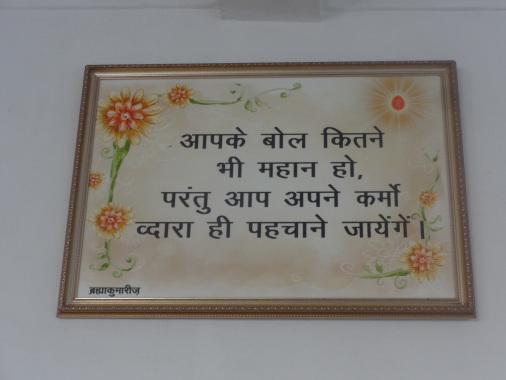 आपके बोल कितने
भी महान हो,
परंतु आप अपने कर्मो
व्दारा ही पहचाने जायेंगें।
ब्रह्माकुमारीज़